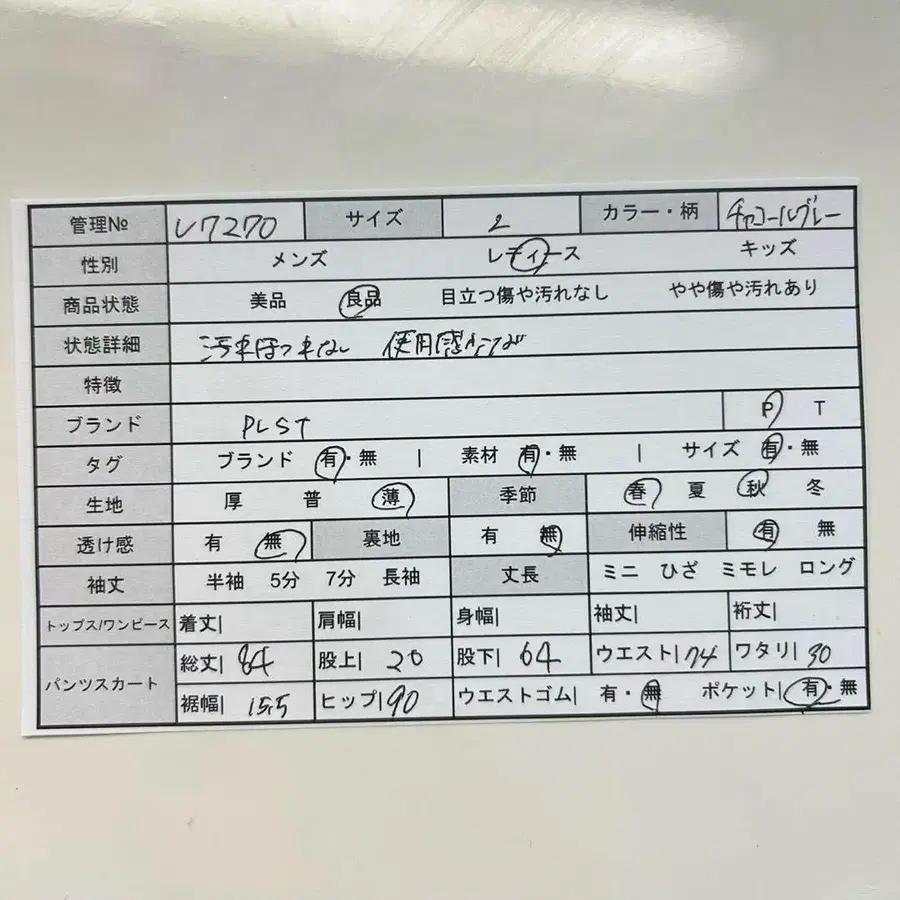 管理№ レ7270 サイズ 2 カラー・柄 チャコールグレー
性別 メンズ レディース キッズ
商品状態 美品 良品 目立つ傷や汚れなし やや傷や汚れあり
状態詳細 汚れほつれなし 使用感
特徴
ブランド PLST P T
タグ ブランド 有・無 | 素材 有・無 | サイズ 有・無
生地 厚 普 薄 季節 春 夏 秋 冬
透け感 有 無 裏地 有 無 伸縮性 有 無
袖丈 半袖 5分 7分 長袖 丈長 ミニ ひざ ミモレ ロング
トップス/ワンピース 着丈| 肩幅| 身幅| 袖丈| 裄丈|
パンツスカート 総丈| 84 股上| 20 股下| 64 ウエスト| 74 ワタリ| 30
裾幅| 15.5 ヒップ| 90 ウエストゴム| 有・無 ポケット| 有・無